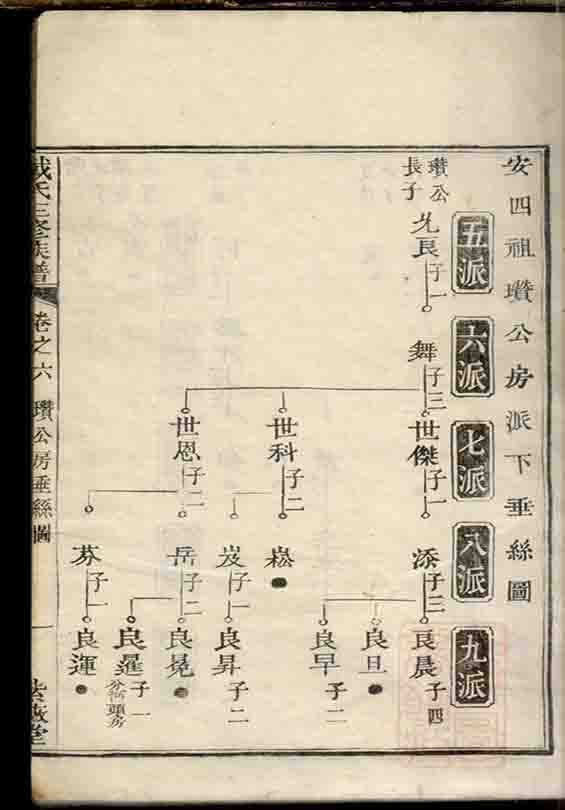 安四祖瓚公房派下垂絲圖
五派
六派
七派
八派
九派
瓚公
長子
允良
子一
舞
子三
世傑
子一
添
子三
良晨
子四
良旦
良早
子二
世科
子二
崧
岌
子一
良昇
子二
世恩
子二
岳
子二
良晃
良暹
子一
分河頭房
芬
子一
良運
戴氏三修族譜
卷之六
瓚公房垂絲圖
一
紫薇堂